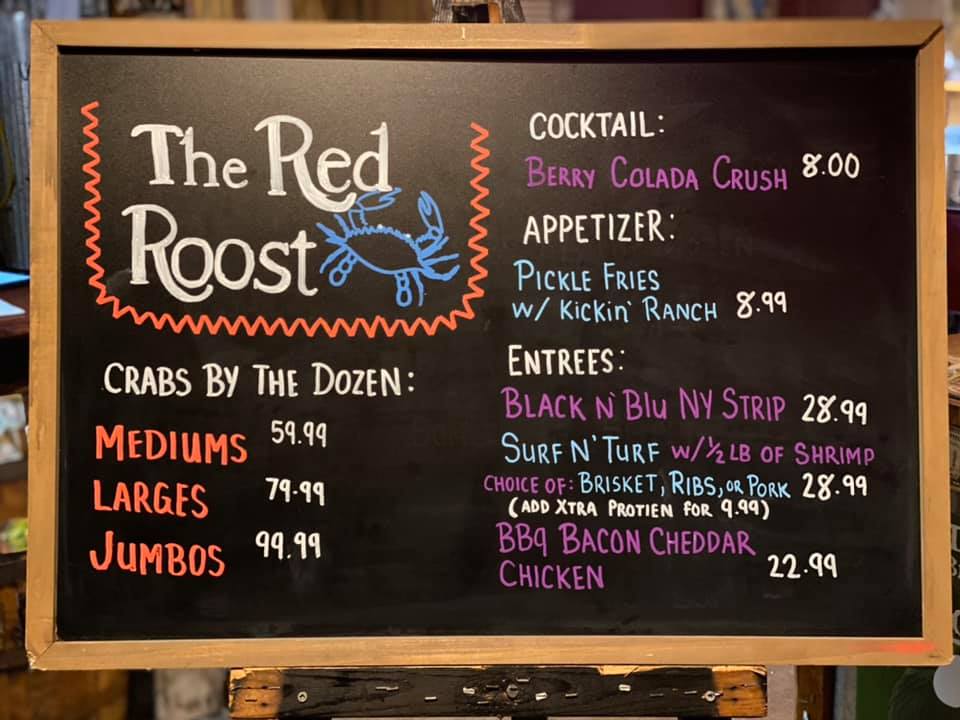 The Red
Roost
CRABS BY THE DOZEN:
MEDIUMS 59.99
LARGES 79.99
JUMBOS 99.99
COCKTAIL:
BERRY COLADA CRUSH 8.00
APPETIZER:
PICKLE FRIES
W/ KICKIN' RANCH 8.99
ENTREES:
BLACK N' BLU NY STRIP 28.99
SURF N' TURF W/ ½ LB OF SHRIMP
CHOICE OF: BRISKET, RIBS, OR PORK 28.99
(ADD XTRA PROTIEN FOR 9.99)
BBQ BACON CHEDDAR
CHICKEN 22.99